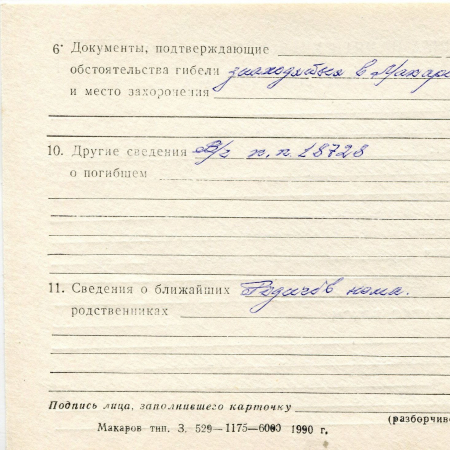 6· Документы, подтверждающие
обстоятельства гибели знаходяться в Макарі
и место захоронения
10. Другие сведения В/ч п.п. 18728
о погибшем
11. Сведения о ближайших Родичів нема.
родственниках
Подпись лица, заполнившего карточку
(разборчиво
Макаров тип. З. 529—1175—6000 1990 г.